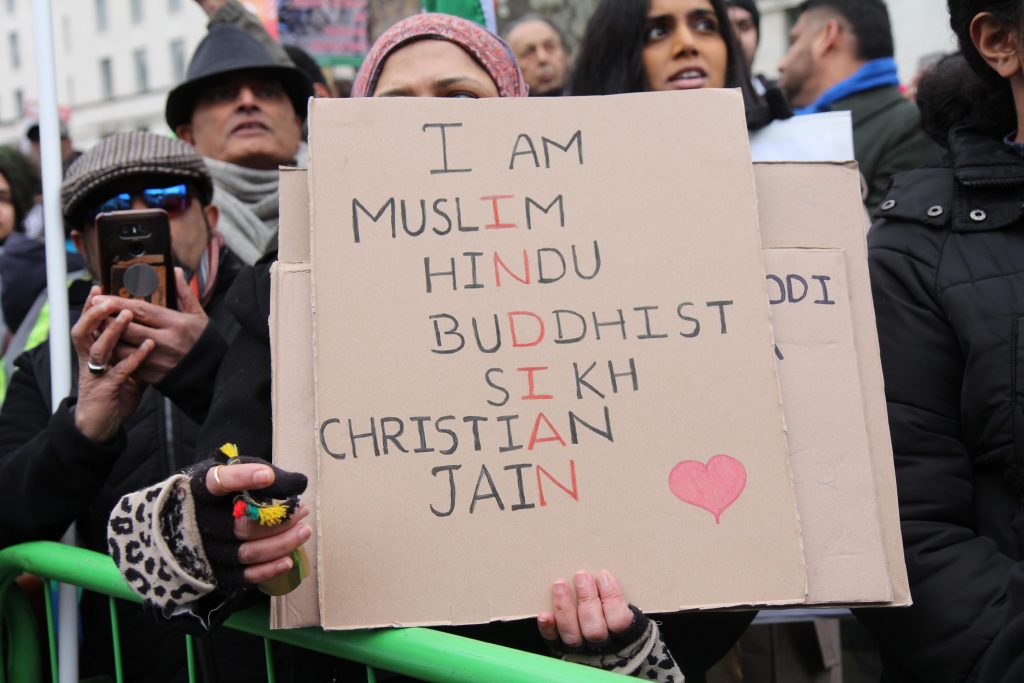 I AM
MUSLIM
HINDU
BUDDHIST
SIKH
CHRISTIAN
JAIN
ODI